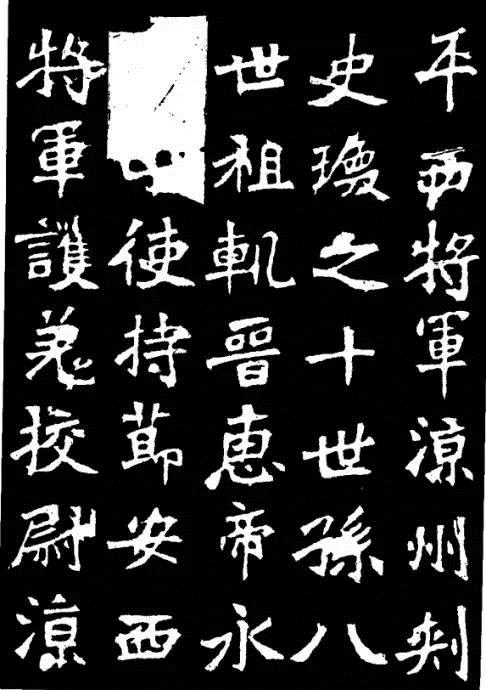 平西將軍涼州刾
史瓊之十世孫八
世祖軌晉惠帝永
使持莭安西
將軍護羌挍尉涼